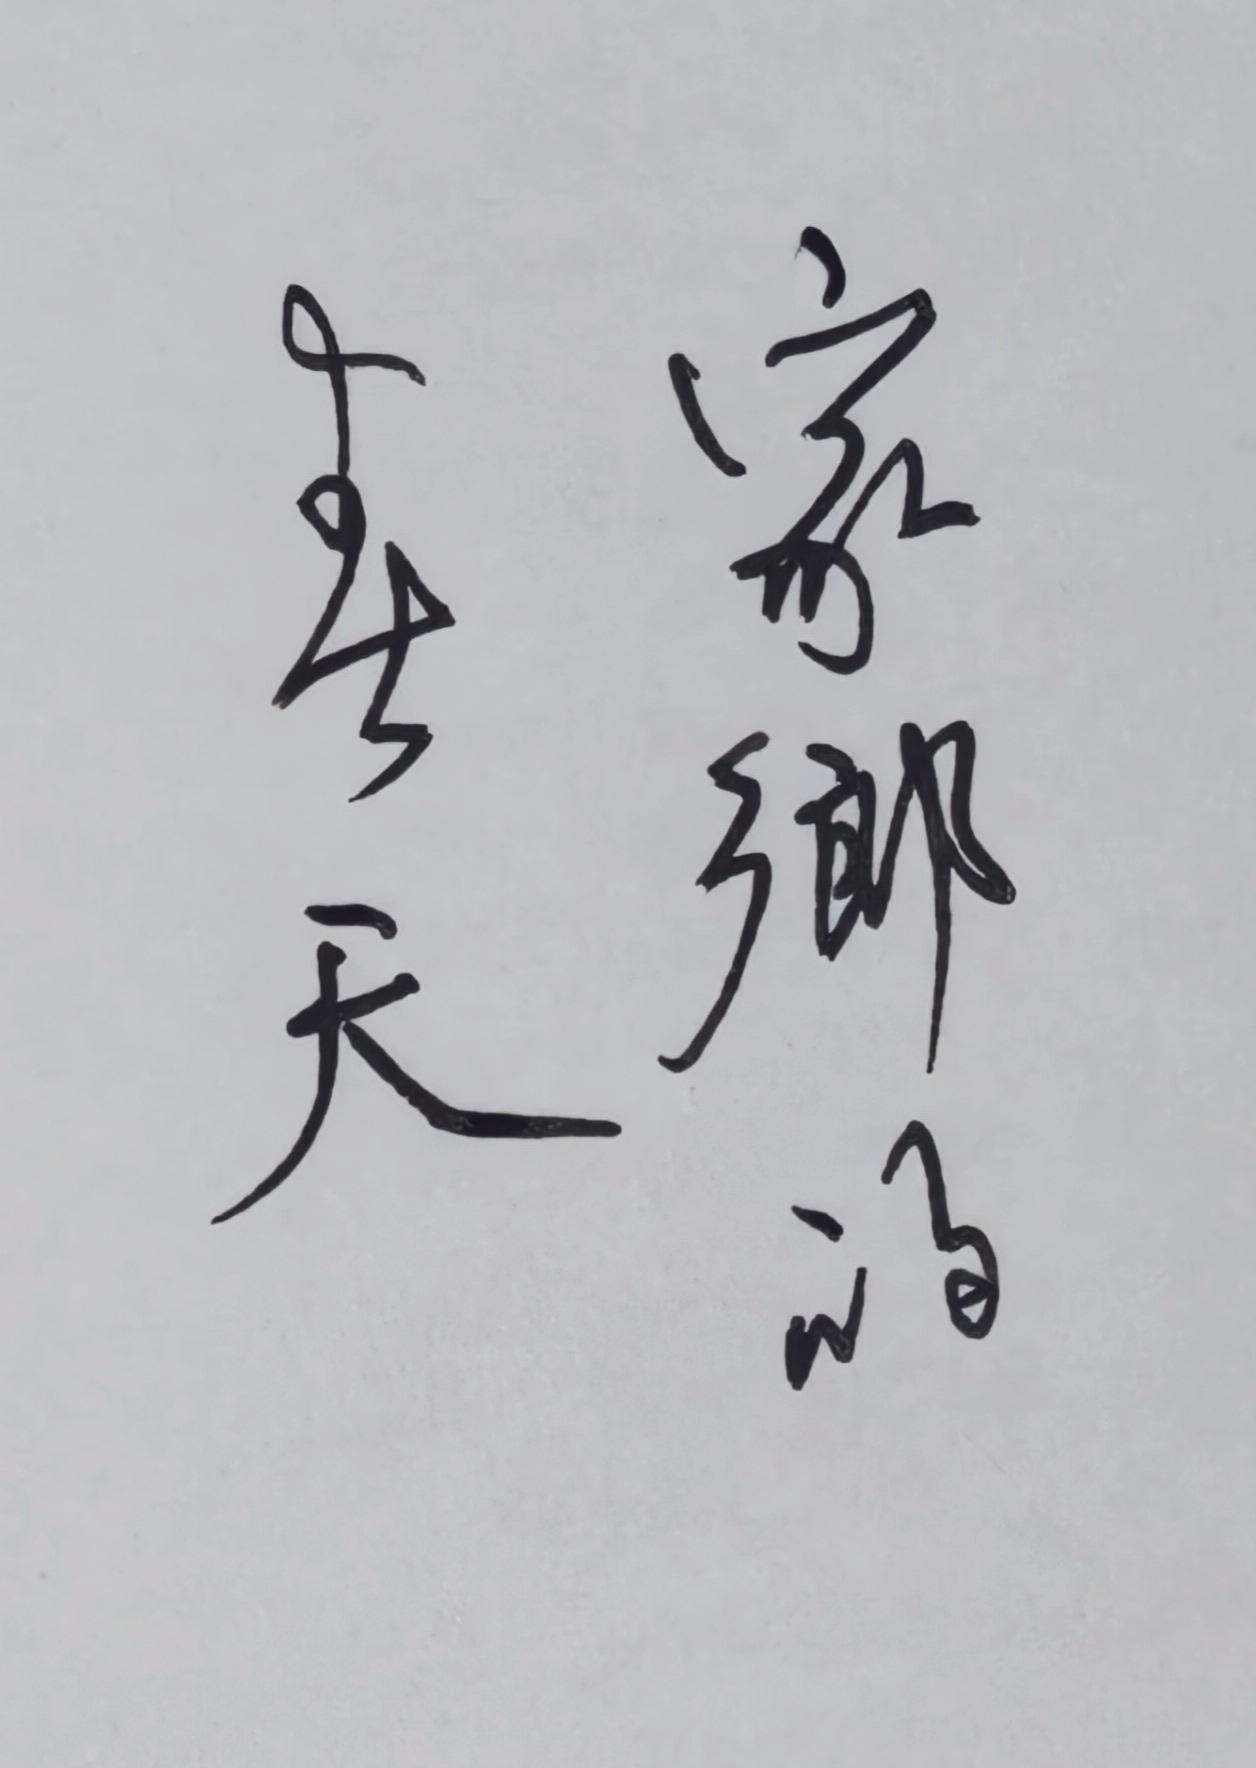 家鄉的
春天